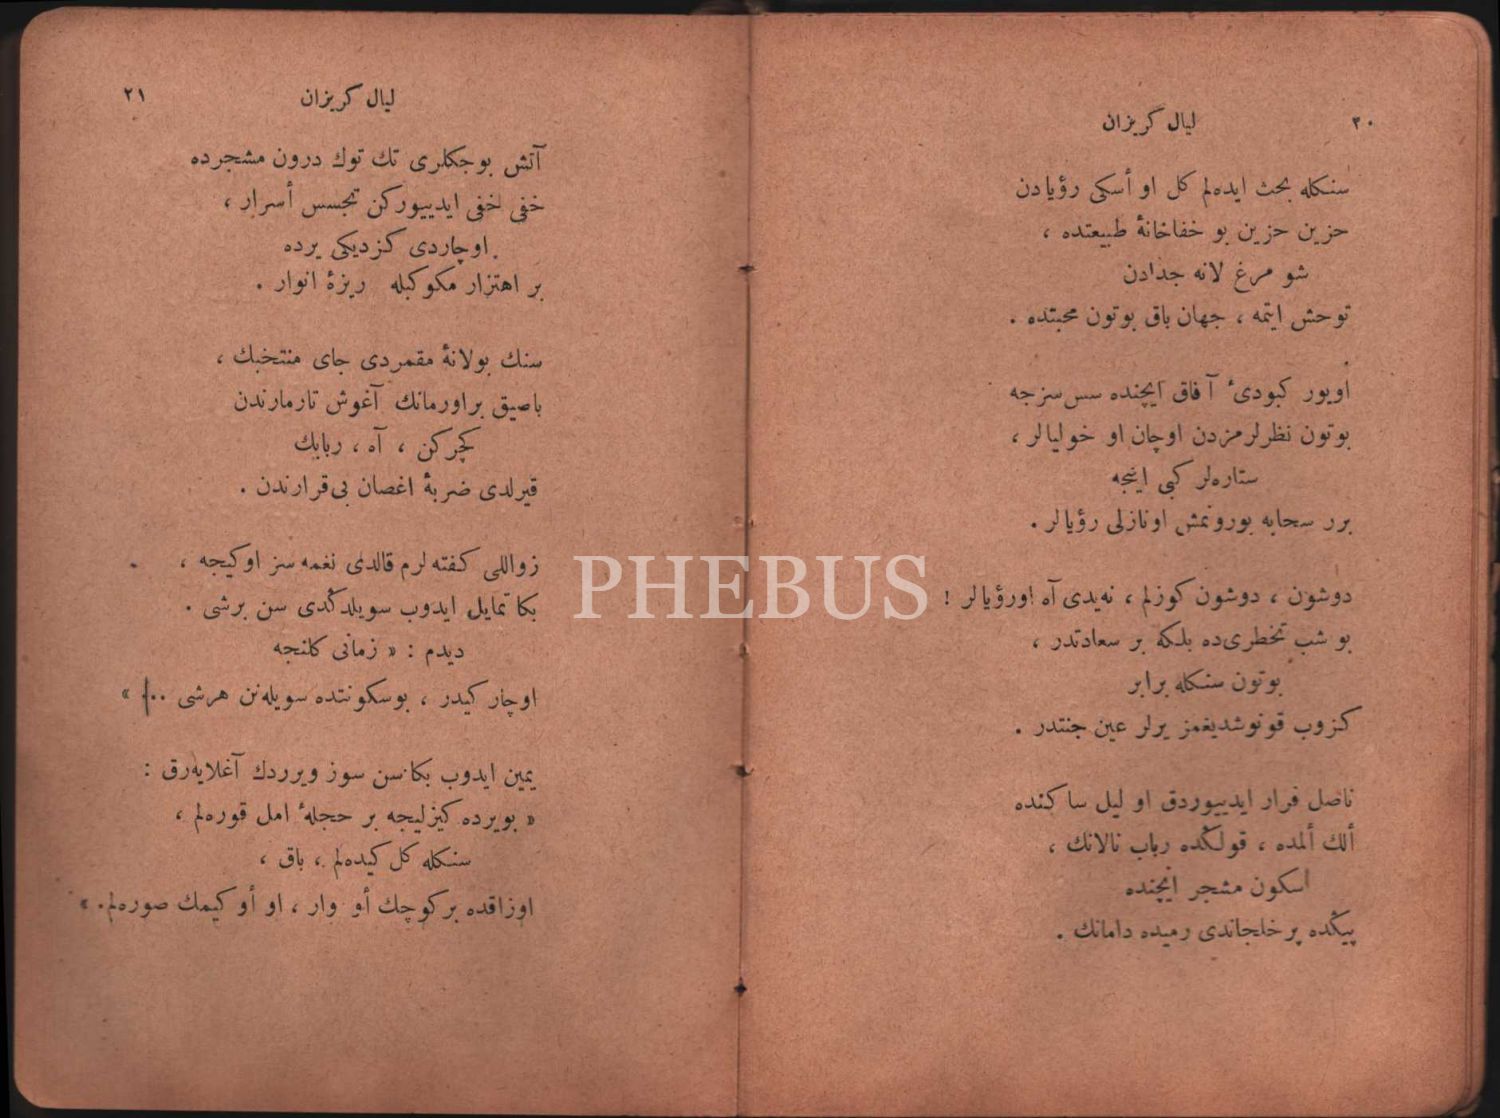 ٢٠
ليال گريزان
سنكله بحث ايده‌لم كل او أسكى رؤيادن
حزين حزين بو خفاخانهٔ طبيعتده ،
شو مرغ لانه جدادن
توحش ايتمه ، جهان باق بوتون محبتده .
اويور كبودئ آفاق ايچنده سس‌سزجه
بوتون نظرلرمزدن اوچان او خوليالر ،
ستاره‌لر كبى اينجه
برر سحابه بورونمش اونازلى رؤيالر .
دوشون ، دوشون كوزلم ، نه‌يدى آه اورؤيالر !
بو شب تخطرى‌ده بلكه بر سعادتدر ،
بوتون سنكله برابر
كزوب قونوشديغمز يرلر عين جنتدر .
ناصل فرار ايدييوردق او ليل ساكنده
ألك ألمده ، قولكده رباب نالانك ،
اسكون مشجر ايچنده
پيكده پر خلجاندى رميده دامانك .
ليال گريزان
٢١
آتش بوجكلرى تك توك درون مشجرده
خفى خفى ايدييوركن تجسس أسرار ،
اوچاردى كزديكى يرده
بر اهتزار مكوكبله ريزهٔ انوار .
سنك بولانهٔ مقمردى جاى منتخبك ،
باصيق براورمانك آغوش تارمارندن
كچركن ، آه ، ربابك
قيرلدى ضربهٔ اغصان بى‌قرارندن .
زواللى كفته لرم قالدى نغمه سز اوكيجه ،
بكا تمايل ايدوب سويلدكدى سن برشى .
ديدم : « زمانى كلنجه
اوچار كيدر ، بوسكونتده سويله‌نن هرشى ..! »
يمين ايدوب بكا سن سوز ويرردك آغلايه‌رق :
« بويرده كيزليجه بر حجلهٔ امل قوره‌لم ،
سنكله كل كيده‌لم ، باق ،
اوزاقده بركوچك أو وار ، او أو كيمك صوره‌لم . »
PHEBUS